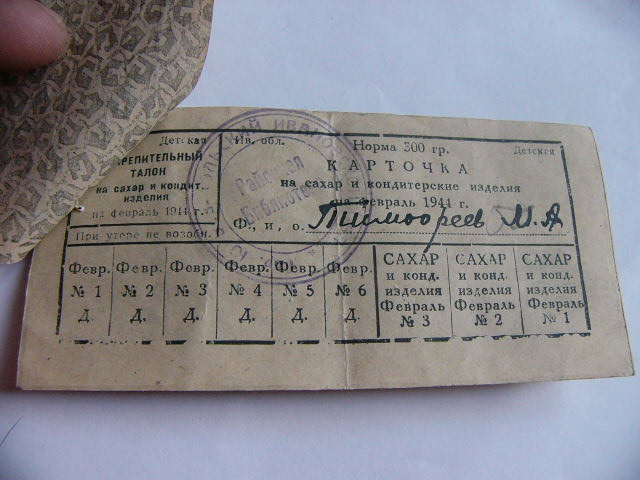 Детская
КРЕПИТЕЛЬНЫЙ
ТАЛОН
на сахар и кондит.
изделия
на февраль 1944 г.
При утере не возобн.
Ив. обл. Норма 300 гр. Детская
КАРТОЧКА
на сахар и кондитерские изделия
на февраль 1944 г.
Ф., и., о. Тимофеев М. А
Районная
Библиотека
Февр. Февр. Февр. Февр. Февр. Февр.
№ 1 № 2 № 3 № 4 № 5 № 6
Д. Д. Д. Д. Д. Д.
САХАР САХАР САХАР
и конд. и конд. и конд.
изделия изделия изделия
Февраль Февраль Февраль
№ 3 № 2 № 1